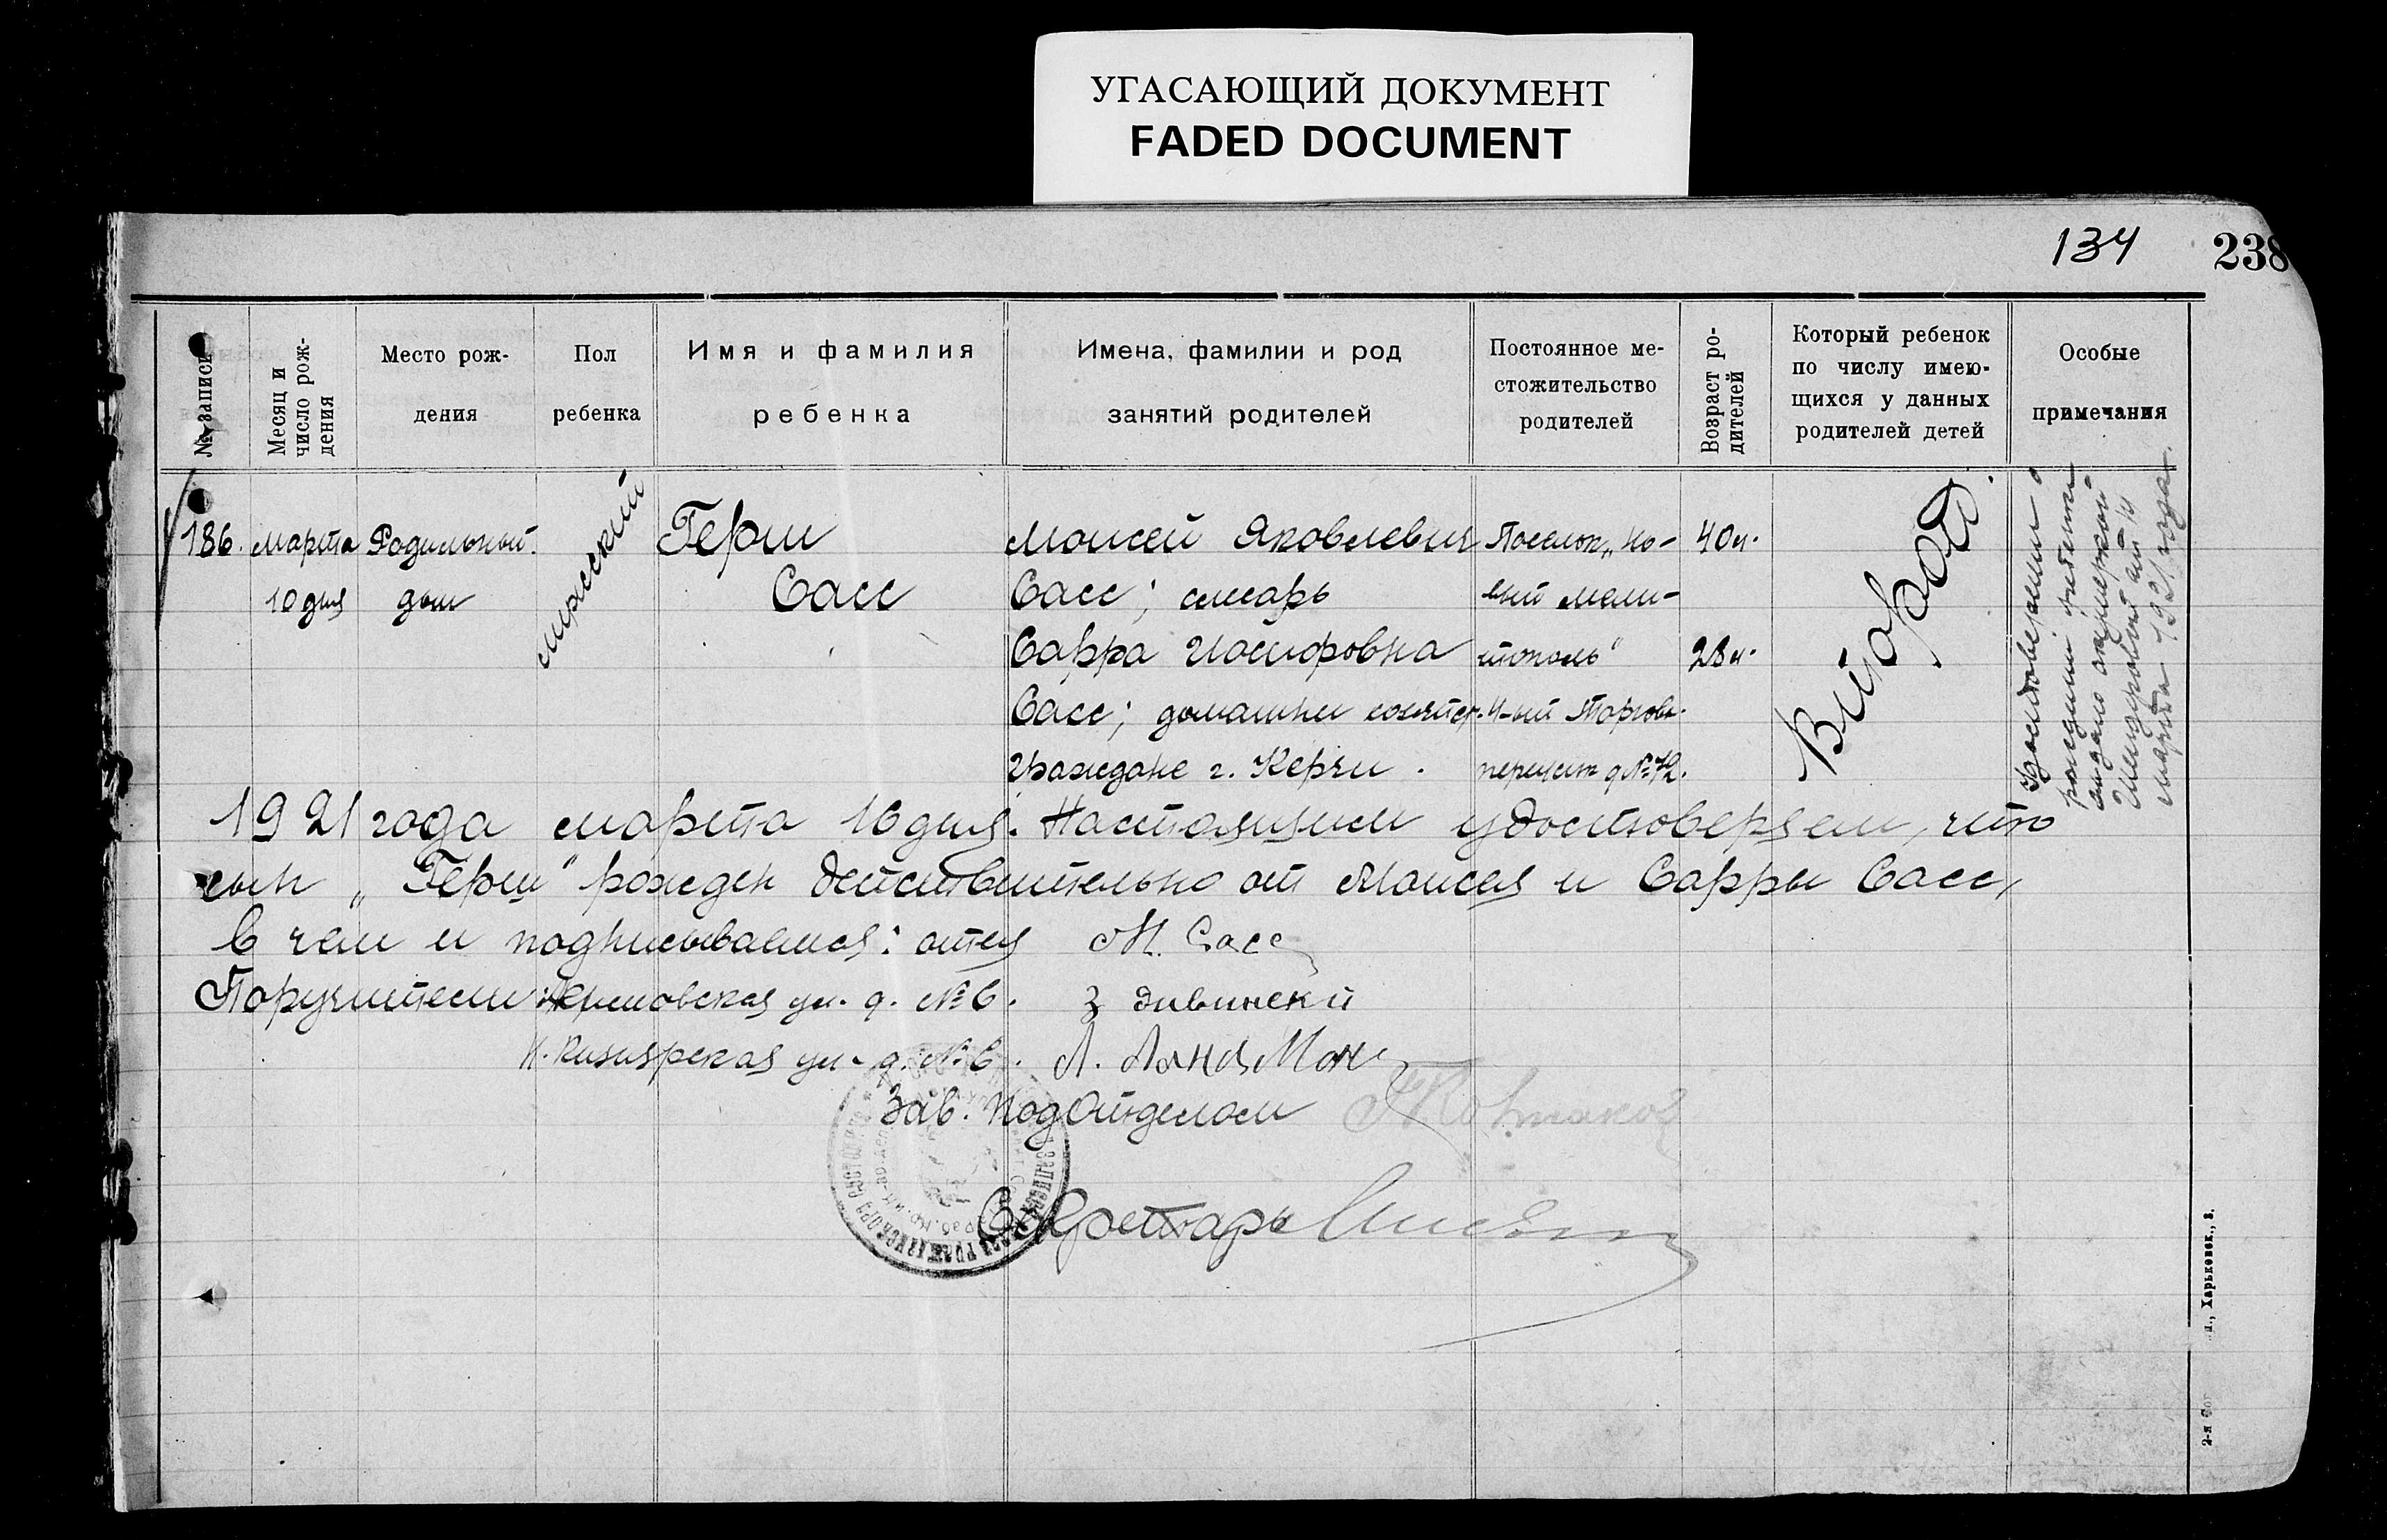 УГАСАЮЩИЙ ДОКУМЕНТ
FADED DOCUMENT
134
238
№ записи
Месяц и
число рож-
дения
Место рож-
дения
Пол
ребенка
Имя и фамилия
ребенка
Имена, фамилии и род
занятий родителей
Постоянное ме-
стожительство
родителей
Возраст ро-
дителей
Который ребенок
по числу имею-
щихся у данных
родителей детей
Особые
примечания
186.
марта
10 дня
Родильный
дом
мужской
Герш
Сасс
Моисей Яковлевич
Сасс; слесарь
Сарра Иосифовна
Сасс; домашн.
Граждане г. Керчи.
Поселок „Но-
вый Мели-
тополь"
4-ый Торгов.
40 л.
28 л.
Второй
Удостоверение о
рождении
выдано акушеркой
марта 1921 года.
1921 года марта 16 дня. Настоящим удостоверяем, что
сын „Герш" рожден действительно от Моисея и Сарры Сасс,
в чем и подписываемся: отец М. Сасс
Поручители: ул. д. № 6. З Дивински
ул. д. № 6. Л.
Зав. Подотделом
Секретарь
Харьковск., 3.
2-я